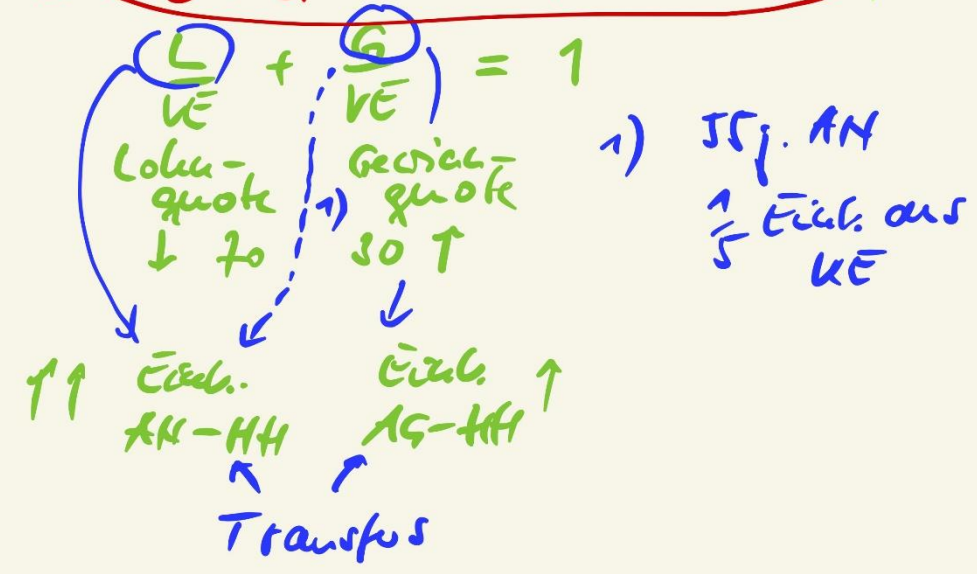 L/VE + G/VE = 1
Lohn-
quote
↓ 70
1)
Gewinn-
quote
30 ↑
1) 55j. AN
1/5 Eink. aus
KE
↑↑ Eink.
AN-HH
Eink. ↑
AG-HH
Transfers